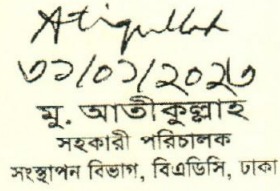 Atiqullah
৩১/০১/২০২৩
মু. আতীকুল্লাহ
সহকারী পরিচালক
সংস্থাপন বিভাগ, বিএডিসি, ঢাকা